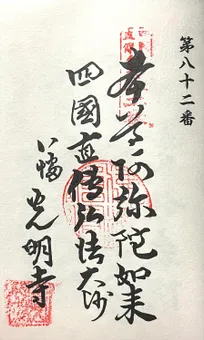 第八十二番
本尊阿弥陀如来
四國直傳弘法大師
八幡 光明寺